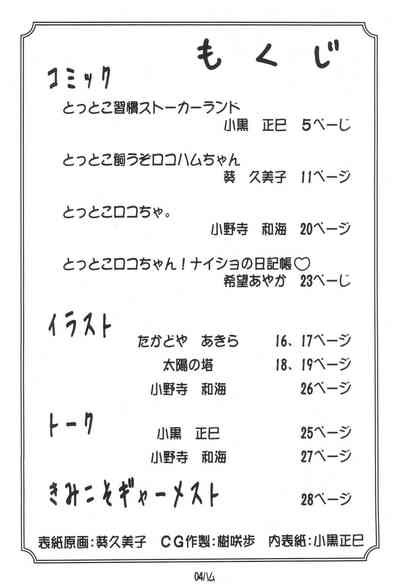 もくじ
コミック
とっとこ習慣ストーカーランド
小黒 正巳 5ぺーじ
とっとこ飼うぞロコハムちゃん
葵 久美子 11ページ
とっとこロコちゃ。
小野寺 和海 20ページ
とっとこロコちゃん!ナイショの日記帳♡
希望あやか 23ぺーじ
イラスト
たかどや あきら 16、17ページ
太陽の塔 18、19ページ
小野寺 和海 26ページ
トーク
小黒 正巳 25ページ
小野寺 和海 27ページ
きみこそギャーメスト
28ページ
表紙原画:葵久美子 CG作製:樹咲歩 内表紙:小黒正巳
04ハム